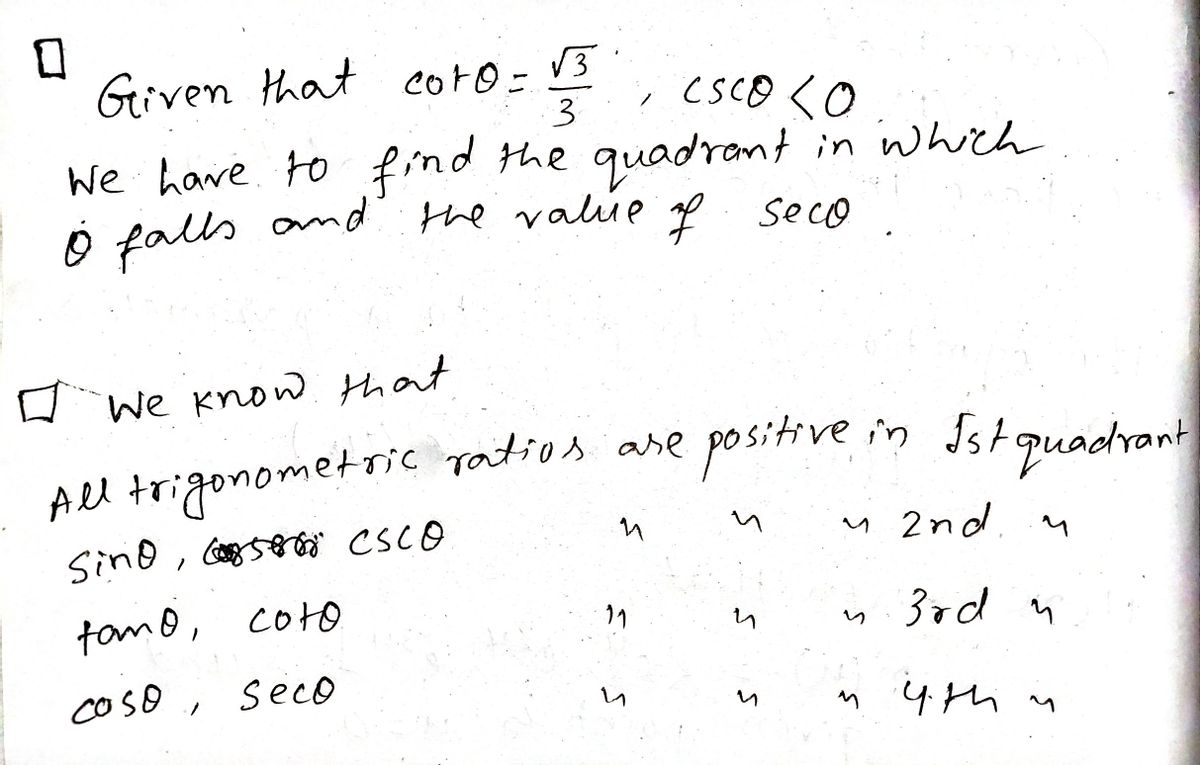 Given that cotθ = √3/3 , cscθ < 0
We have to find the quadrant in which
θ falls and the value of secθ .
We know that
All trigonometric ratios are positive in Ist quadrant
sinθ , cscθ " " " 2nd "
tanθ , cotθ " " " 3rd "
cosθ , secθ " " " 4th "